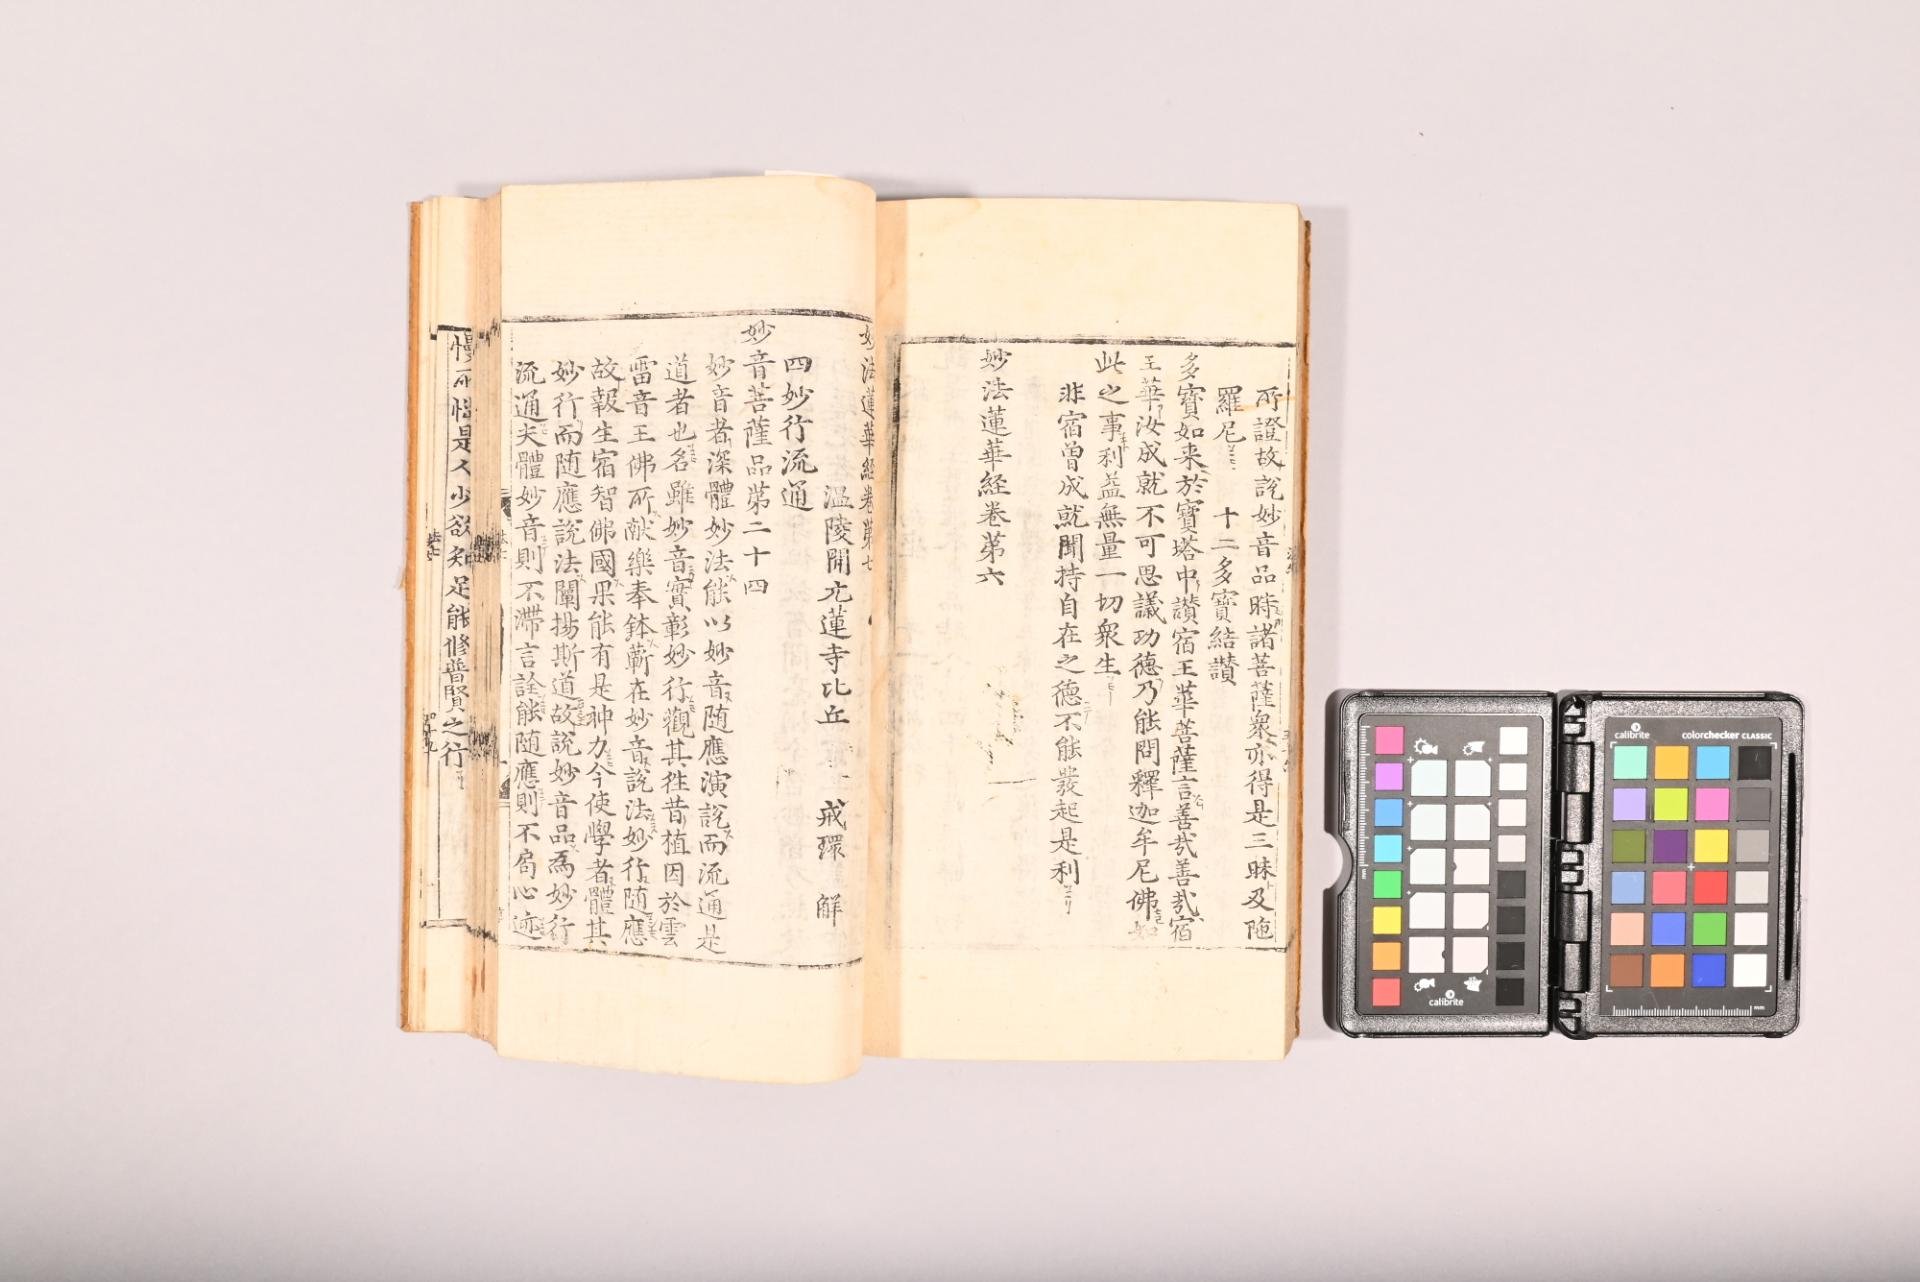 所證故説妙音品時諸菩薩衆亦得是三昧及陁
羅尼 十二多寶結讃
多寶如来於寶塔中讃宿王華菩薩言善哉善哉宿
王華汝成就不可思議功德乃能問釋迦牟尼佛如
此之事利益無量一切衆生
非宿曽成就聞持自在之德不能發起是利
妙法蓮華経卷第六
妙法蓮華経卷第七
溫陵開元蓮寺比丘 戒環 解
四妙行流通
妙音菩薩品第二十四
妙音者深體妙法能以妙音随應演説而流通是
道者也名雖妙音實彰妙行觀其徃昔植因於雲
雷音王佛所献樂奉鉢蘄在妙音説法妙行随應
故報生宿智佛國果能有是神力今使學者體其
妙行而随應説法闡揚斯道故説妙音品為妙行
流通夫體妙音則不滯言詮能随應則不局心迹
慢所惱是人少欲知足能修普賢之行
calibrite
calibrite
colorchecker CLASSIC